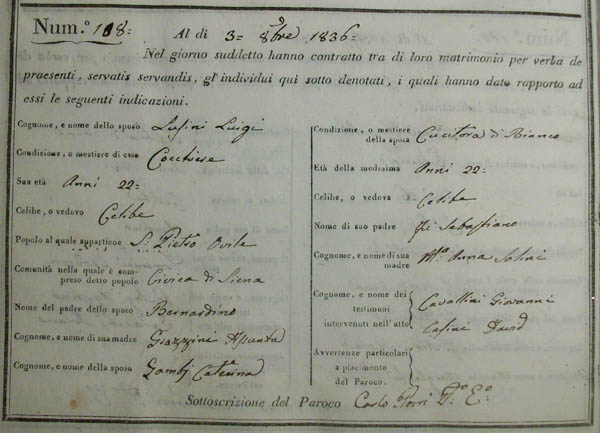 Num.° 108= Al dì 3= 8bre 1836=
Nel giorno suddetto hanno contratto tra di loro matrimonio per verba de
praesenti, servatis servandis, gl'individui qui sotto denotati, i quali hanno dato rapporto ad
essi le seguenti indicazioni.
Cognome, e nome dello sposo Lusini Luigi
Condizione, o mestiere di esso Cocchiere
Sua età Anni 22=
Celibe, o vedovo Celibe
Popolo al quale appartiene S. Pietro Ovile
Comunità nella quale è com-
preso detto popolo Civica di Siena
Nome del padre dello sposo Bernardino
Cognome, e nome di sua madre Grazzini Assunta
Cognome, e nome della sposa Caterina
Condizione, o mestiere
della sposa Cucitora di Bianco
Età della medesima Anni 22=
Celibe, o vedova Celibe
Nome di suo padre Di Sebastiano
Cognome, e nome di sua
madre Mª Anna Solini
Cognome, e nome dei
testimonj
intervenuti nell'atto
Cavallini Giovanni
Casini David
Avvertenze particolari
a piacimento
del Paroco.
Sottoscrizione del Paroco Carlo